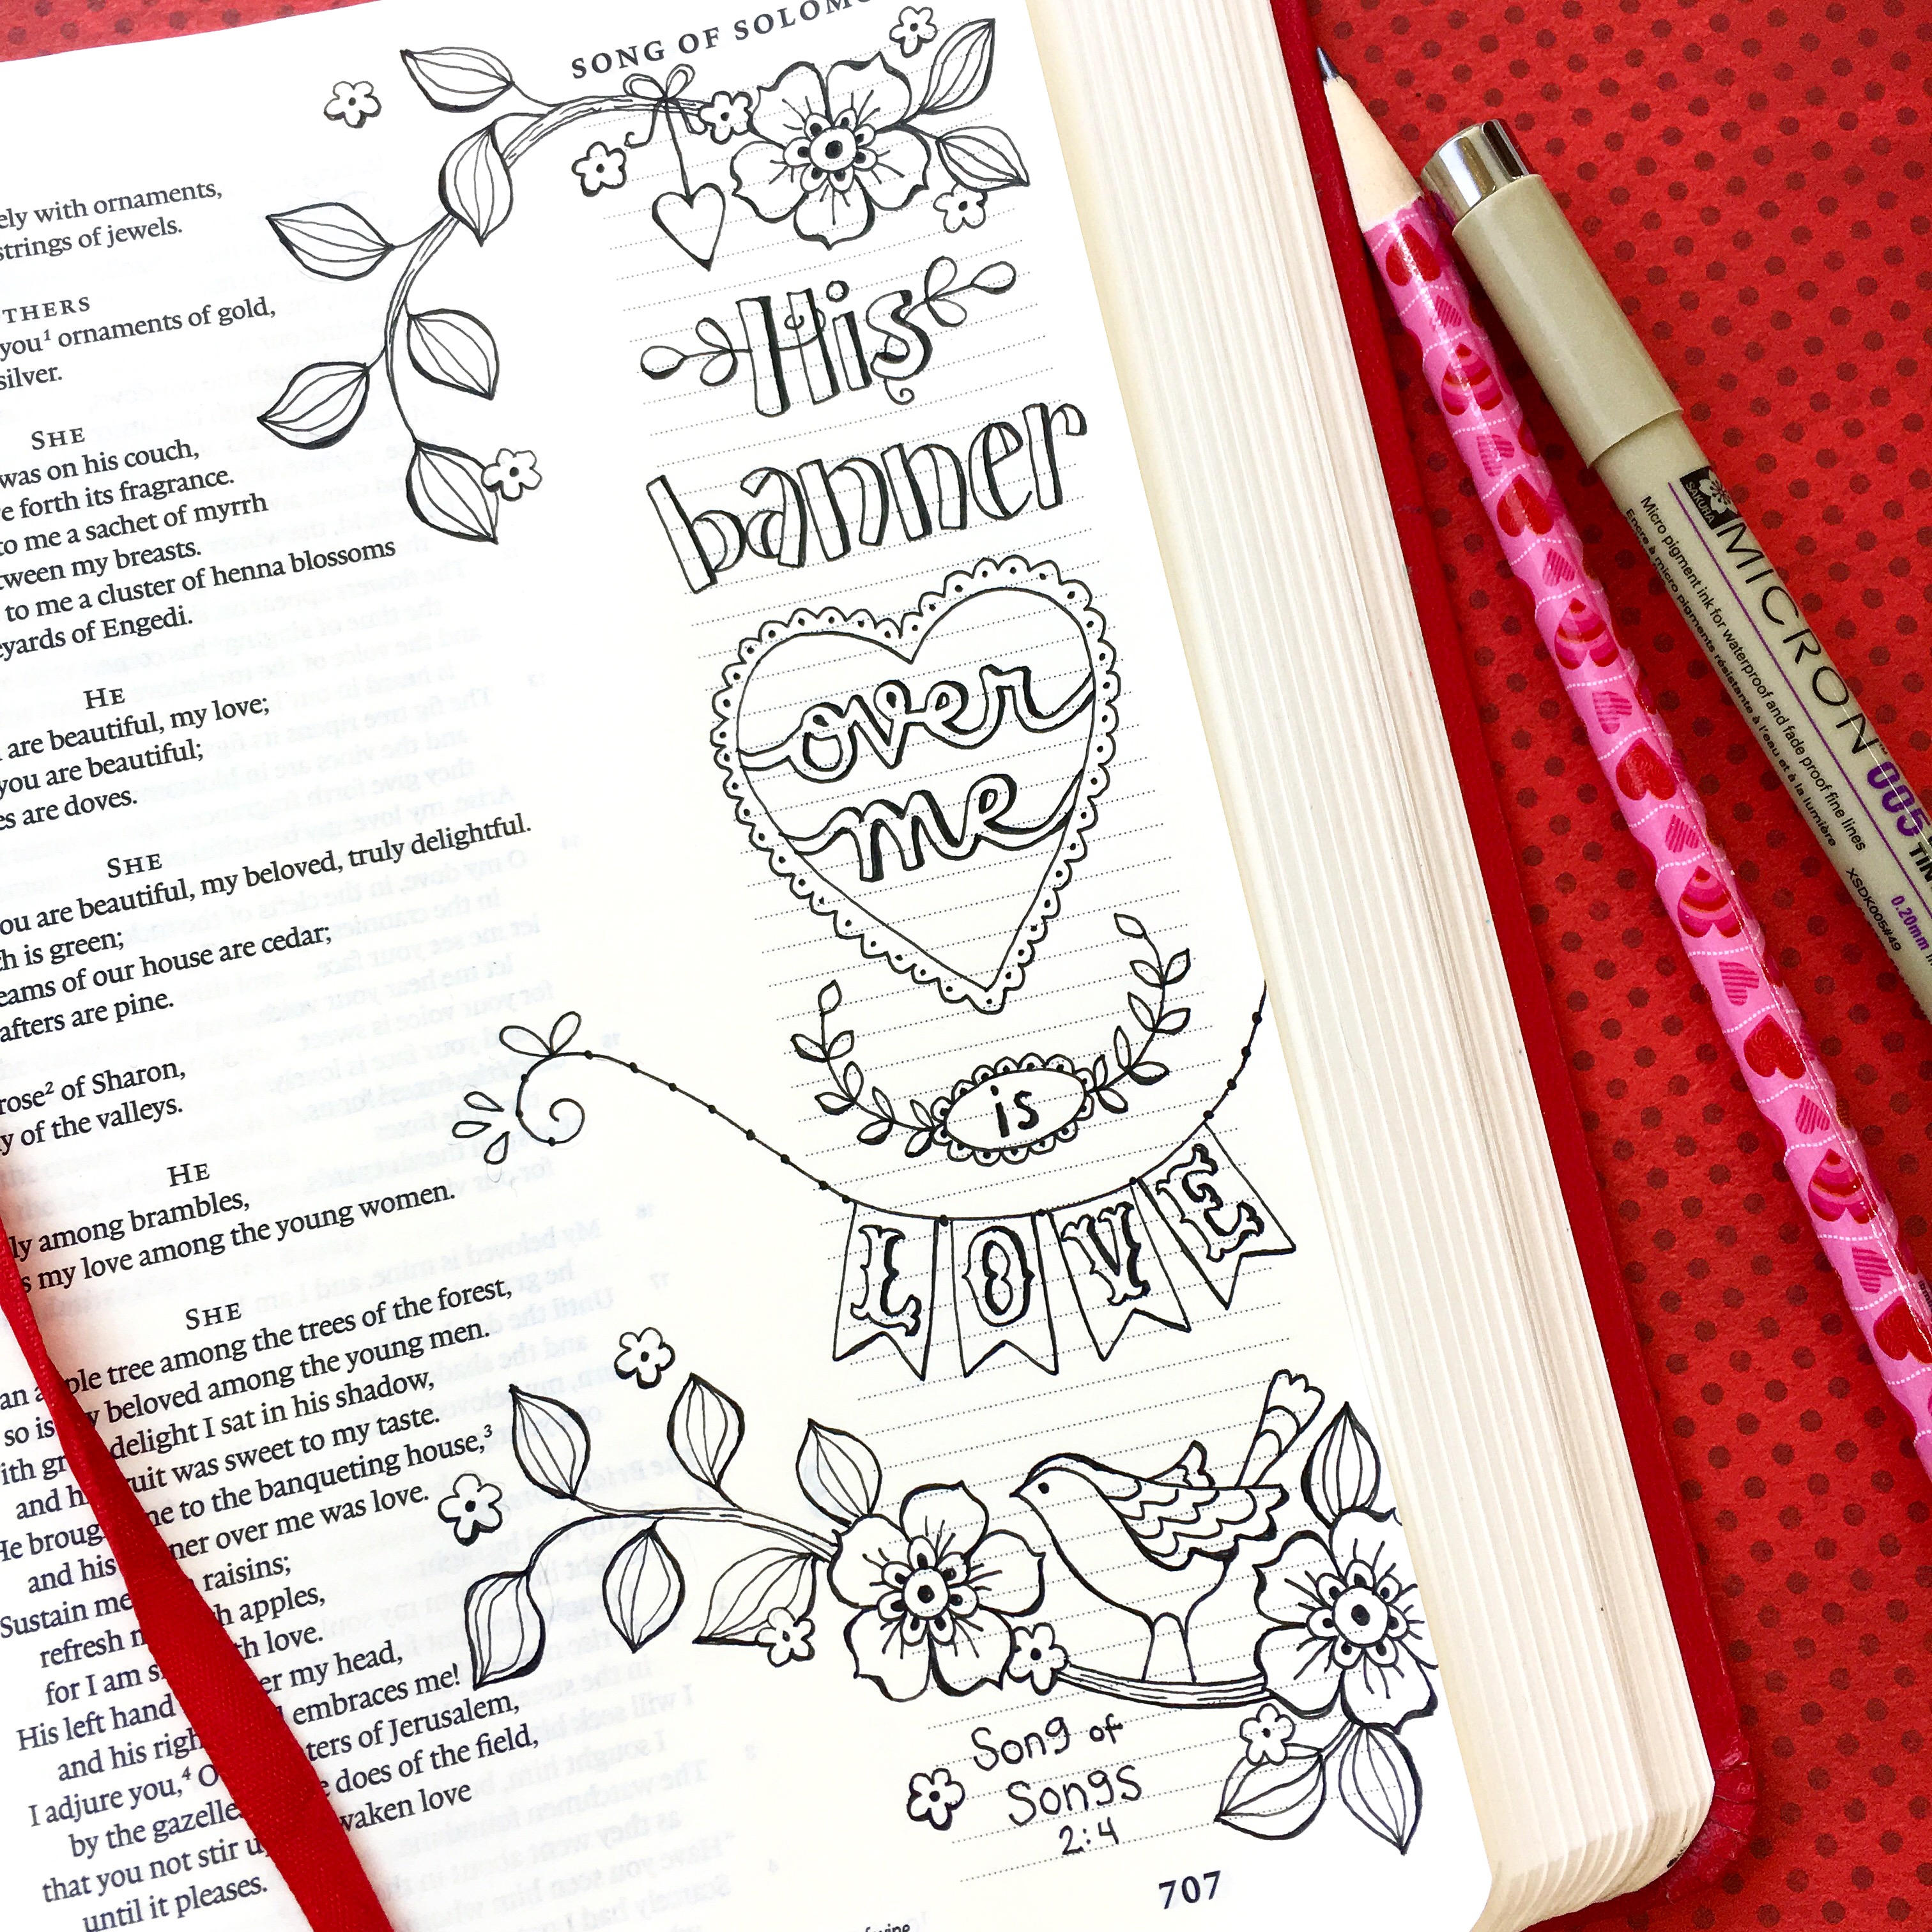 SONG OF SOLOMO
ely with ornaments,
strings of jewels.
THERS
you¹ ornaments of gold,
silver.
SHE
was on his couch,
e forth its fragrance.
to me a sachet of myrrh
tween my breasts.
to me a cluster of henna blossoms
eyards of Engedi.
HE
are beautiful, my love;
you are beautiful;
es are doves.
SHE
ou are beautiful, my beloved, truly delightful.
h is green;
eams of our house are cedar;
afters are pine.
rose² of Sharon,
y of the valleys.
HE
ly among brambles,
s my love among the young women.
SHE
an a ple tree among the trees of the forest,
so is y beloved among the young men.
ith gr delight I sat in his shadow,
and h ruit was sweet to my taste.
He broug me to the banqueting house,³
and his ner over me was love.
Sustain me raisins;
refresh m h apples,
for I am s th love.
His left hand er my head,
and his righ embraces me!
I adjure you,⁴ O ters of Jerusalem,
by the gazelle does of the field,
that you not stir u waken love
until it pleases.
His
banner
over
me
is
LOVE
Song of
Songs
2:4
707
SAKURA
MICRON™ 005
Micro pigment ink for waterproof and fade proof fine lines
Encre à micro pigments résistante à l'eau et à la lumière
XSDK005#49
0.20mm